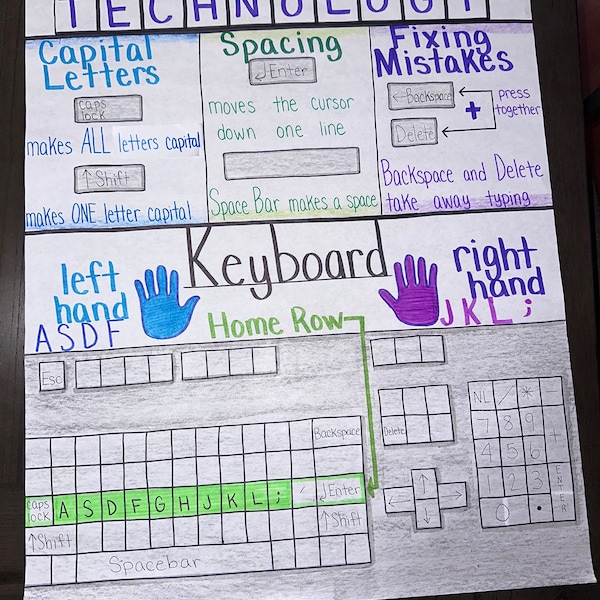 TECHNOLOGY
Capital
Letters
caps
lock
makes ALL letters capital
↑Shift
makes ONE letter capital
Spacing
↲Enter
moves the cursor
down one line
Space Bar makes a space
Fixing
Mistakes
←Backspace
+
Delete
press
together
Backspace and Delete
take away typing
Keyboard
left
hand
ASDF
right
hand
JKL;
Home Row
Esc
Backspace
Delete
NL / *
7 8 9 +
4 5 6
1 2 3 ENTER
0 .
caps
lock
A S D F G H J K L ; ←↲Enter
↑Shift
↑Shift
Spacebar
↑
← →
↓